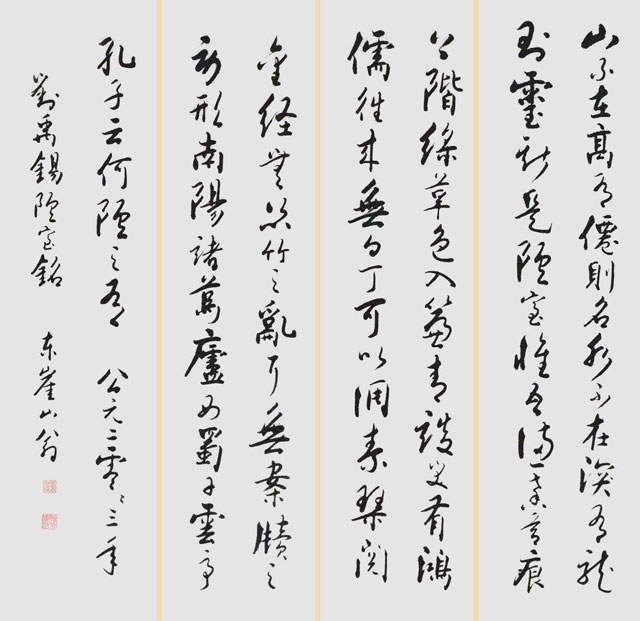 山不在高有僊則名水不在深有龍
則靈斯是陋室惟吾德馨苔痕
上階綠草色入簾青談笑有鴻
儒往来無白丁可以調素琴閱
金経無絲竹之亂耳無案牘之
勞形南陽諸葛廬西蜀子雲亭
孔子云何陋之有 公元二零〻三年
劉禹錫陋室銘 东崖山翁